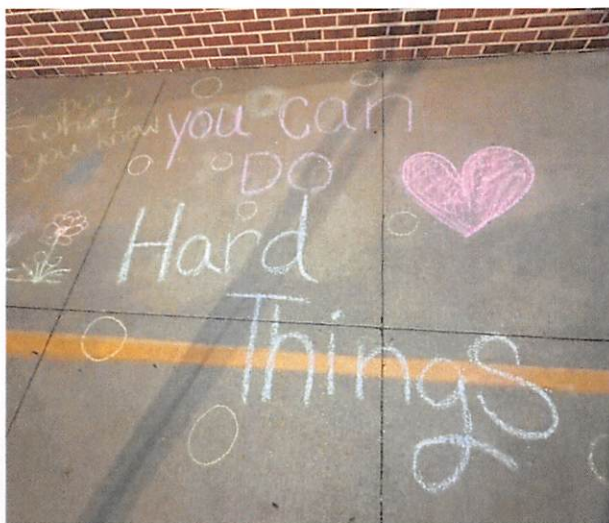 what
you know
you can
DO
Hard
Things